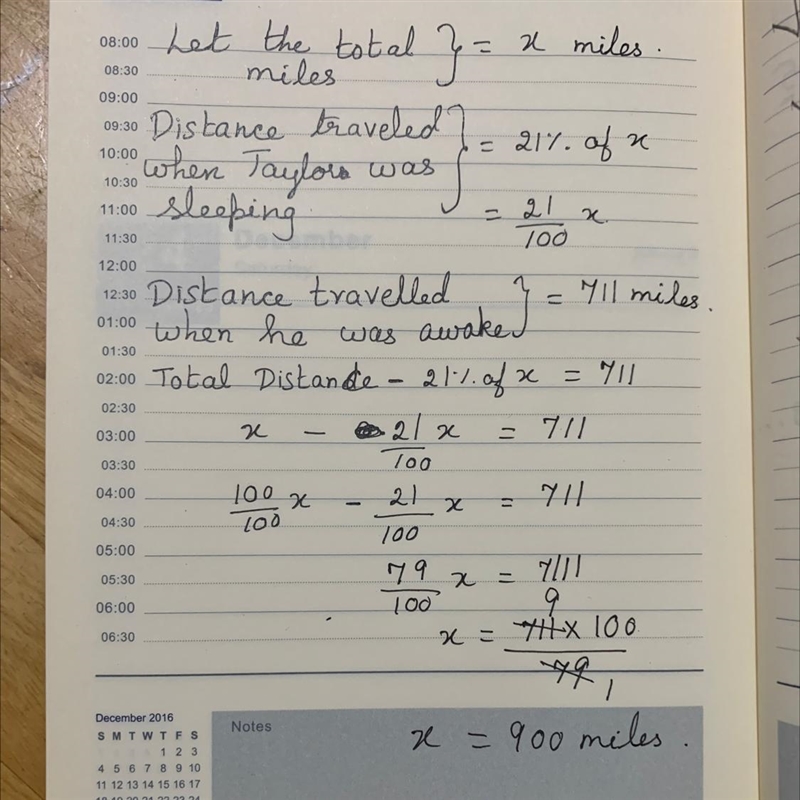 08:00 Let the total } = x miles.
08:30 miles
09:00
09:30 Distance traveled } = 21% of x
10:00 when Taylor was
10:30
11:00 sleeping = 21/100 x
11:30
December
12:00
12:30 Distance travelled } = 711 miles.
01:00 when he was awake
01:30
02:00 Total Distance - 21% of x = 711
02:30
03:00 x - 21/100 x = 711
03:30
04:00 100/100 x - 21/100 x = 711
04:30
05:00
05:30 79/100 x = 7111
06:00 9
06:30 x = 711 x 100 / 79 1
December 2016
Notes
x = 900 miles.
S M T W T F S
1 2 3
4 5 6 7 8 9 10
11 12 13 14 15 16 17
18 19 20 21 22 23 24